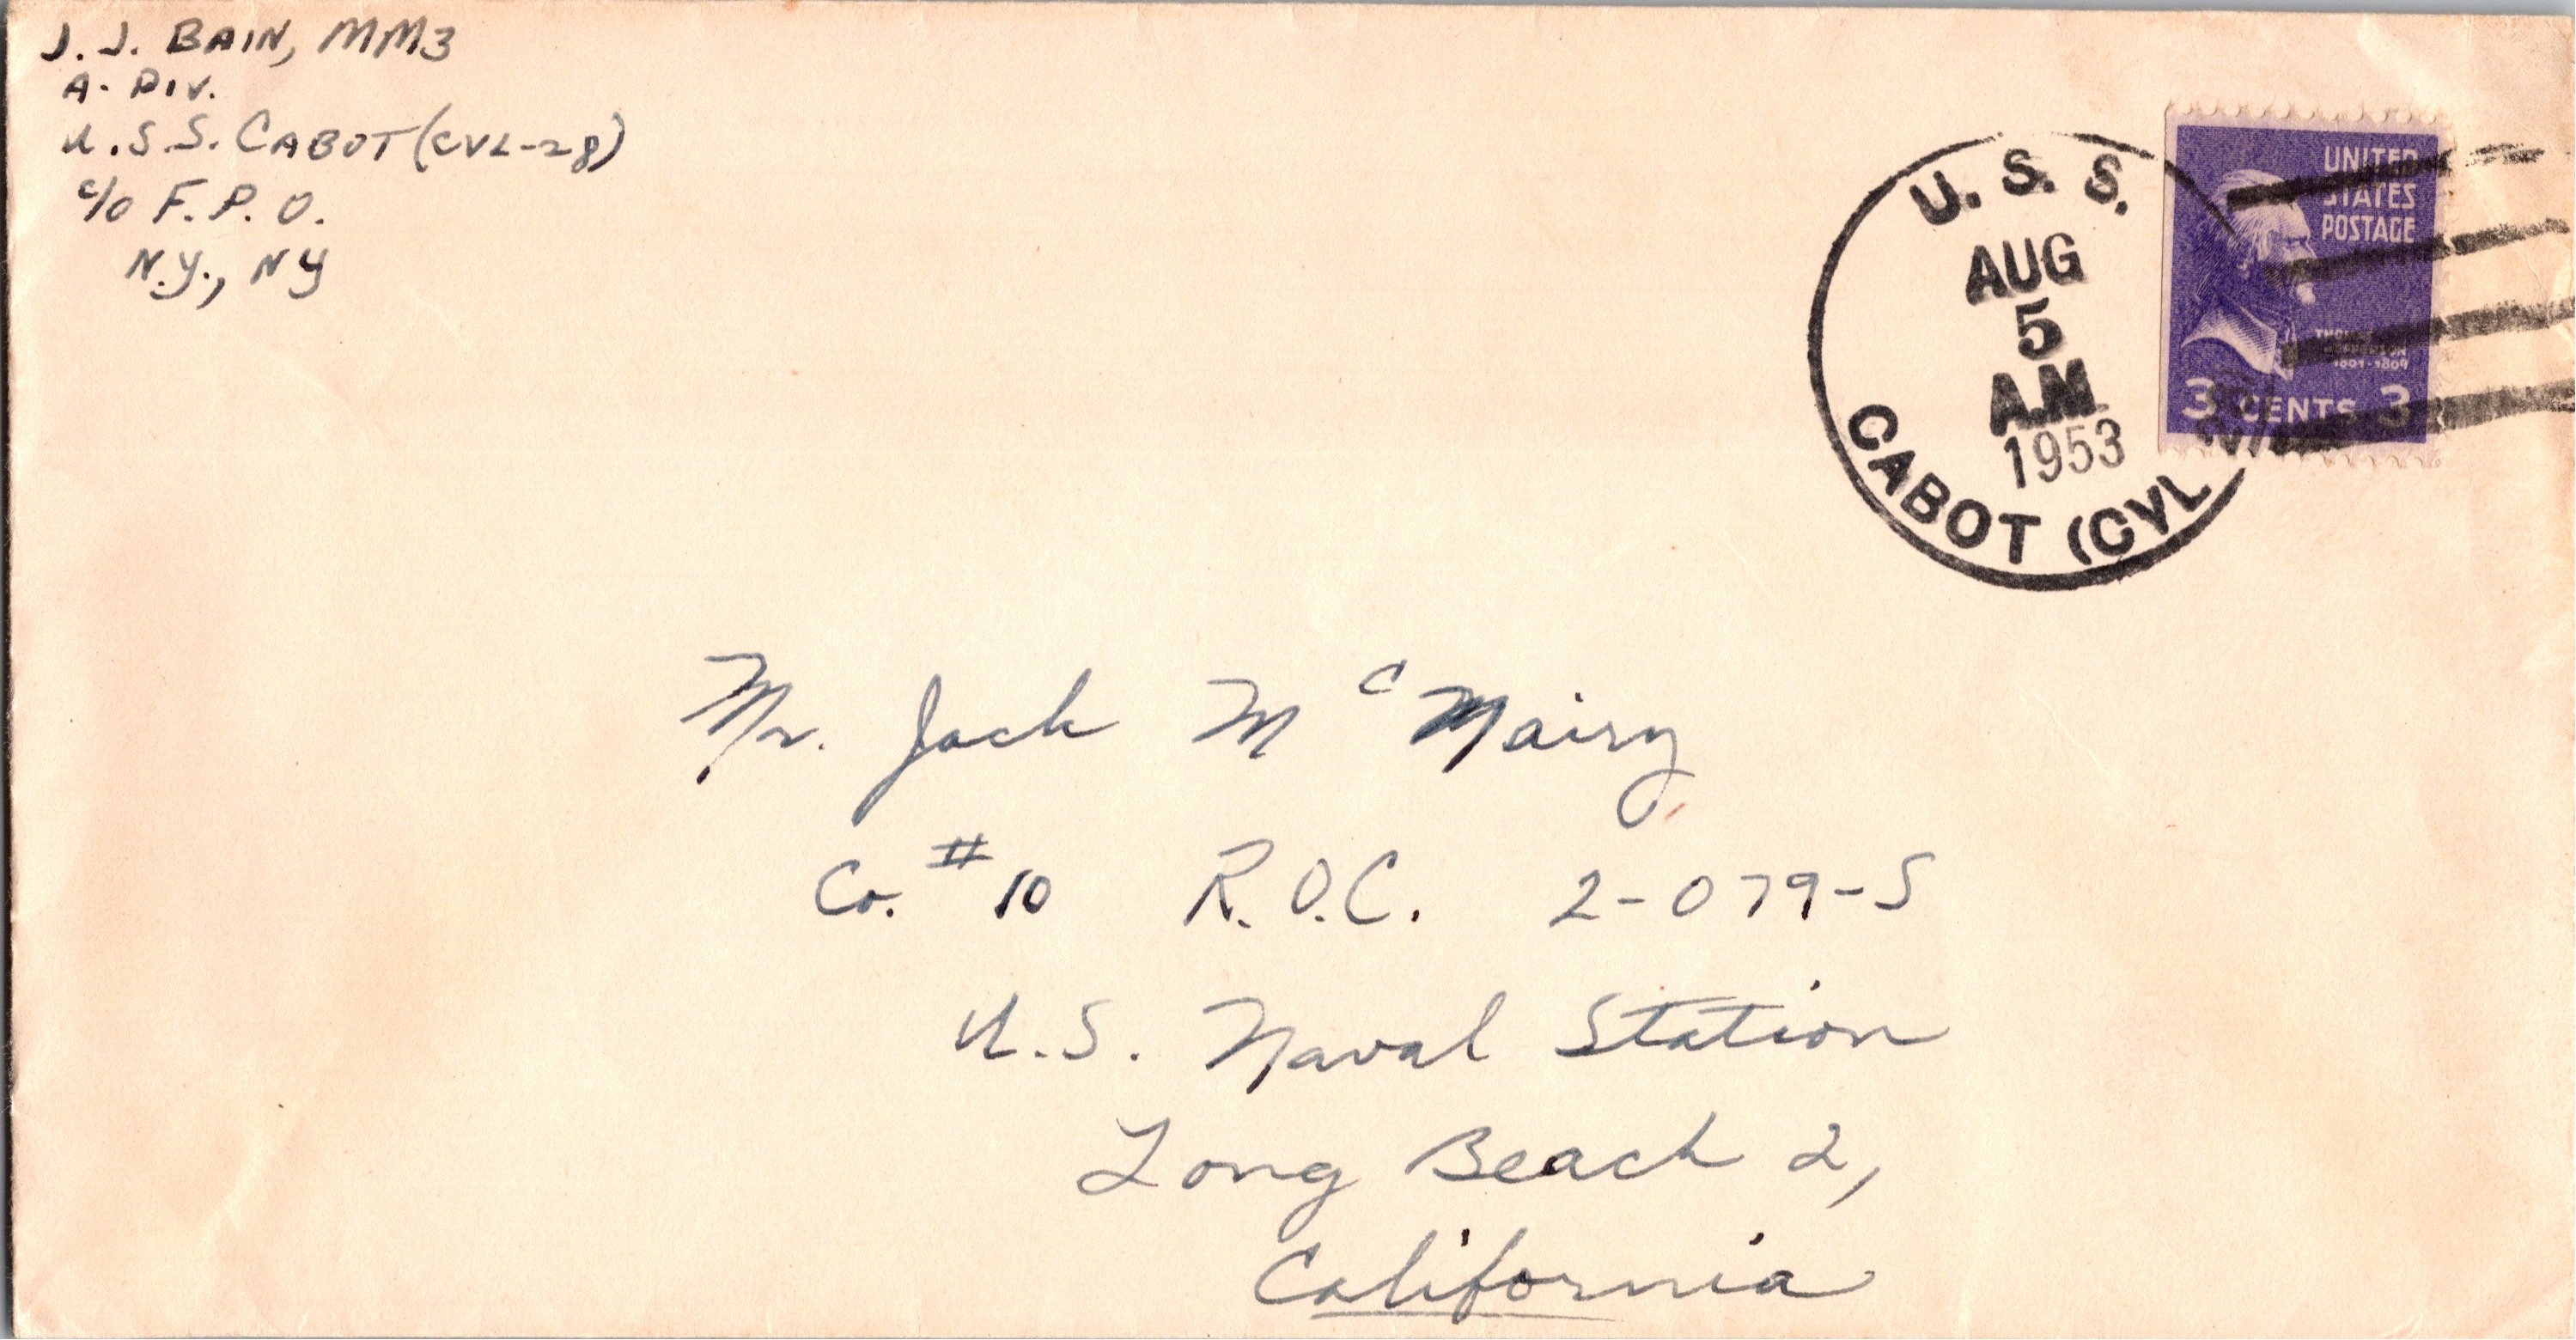 J. J. BAIN, MM3
A- DIV.
U.S.S. CABOT (CVL-28)
c/o F.P.O.
N.Y., NY
U.S.S.
AUG
5
A.M.
1953
CABOT (CVL
UNITED
STATES
POSTAGE
THOMAS
JEFFERSON
1801-1809
3 CENTS 3
Mr. Jack Mc Mairy
Co. #10 R.O.C. 2-079-S
U.S. Naval Station
Long Beach 2,
California